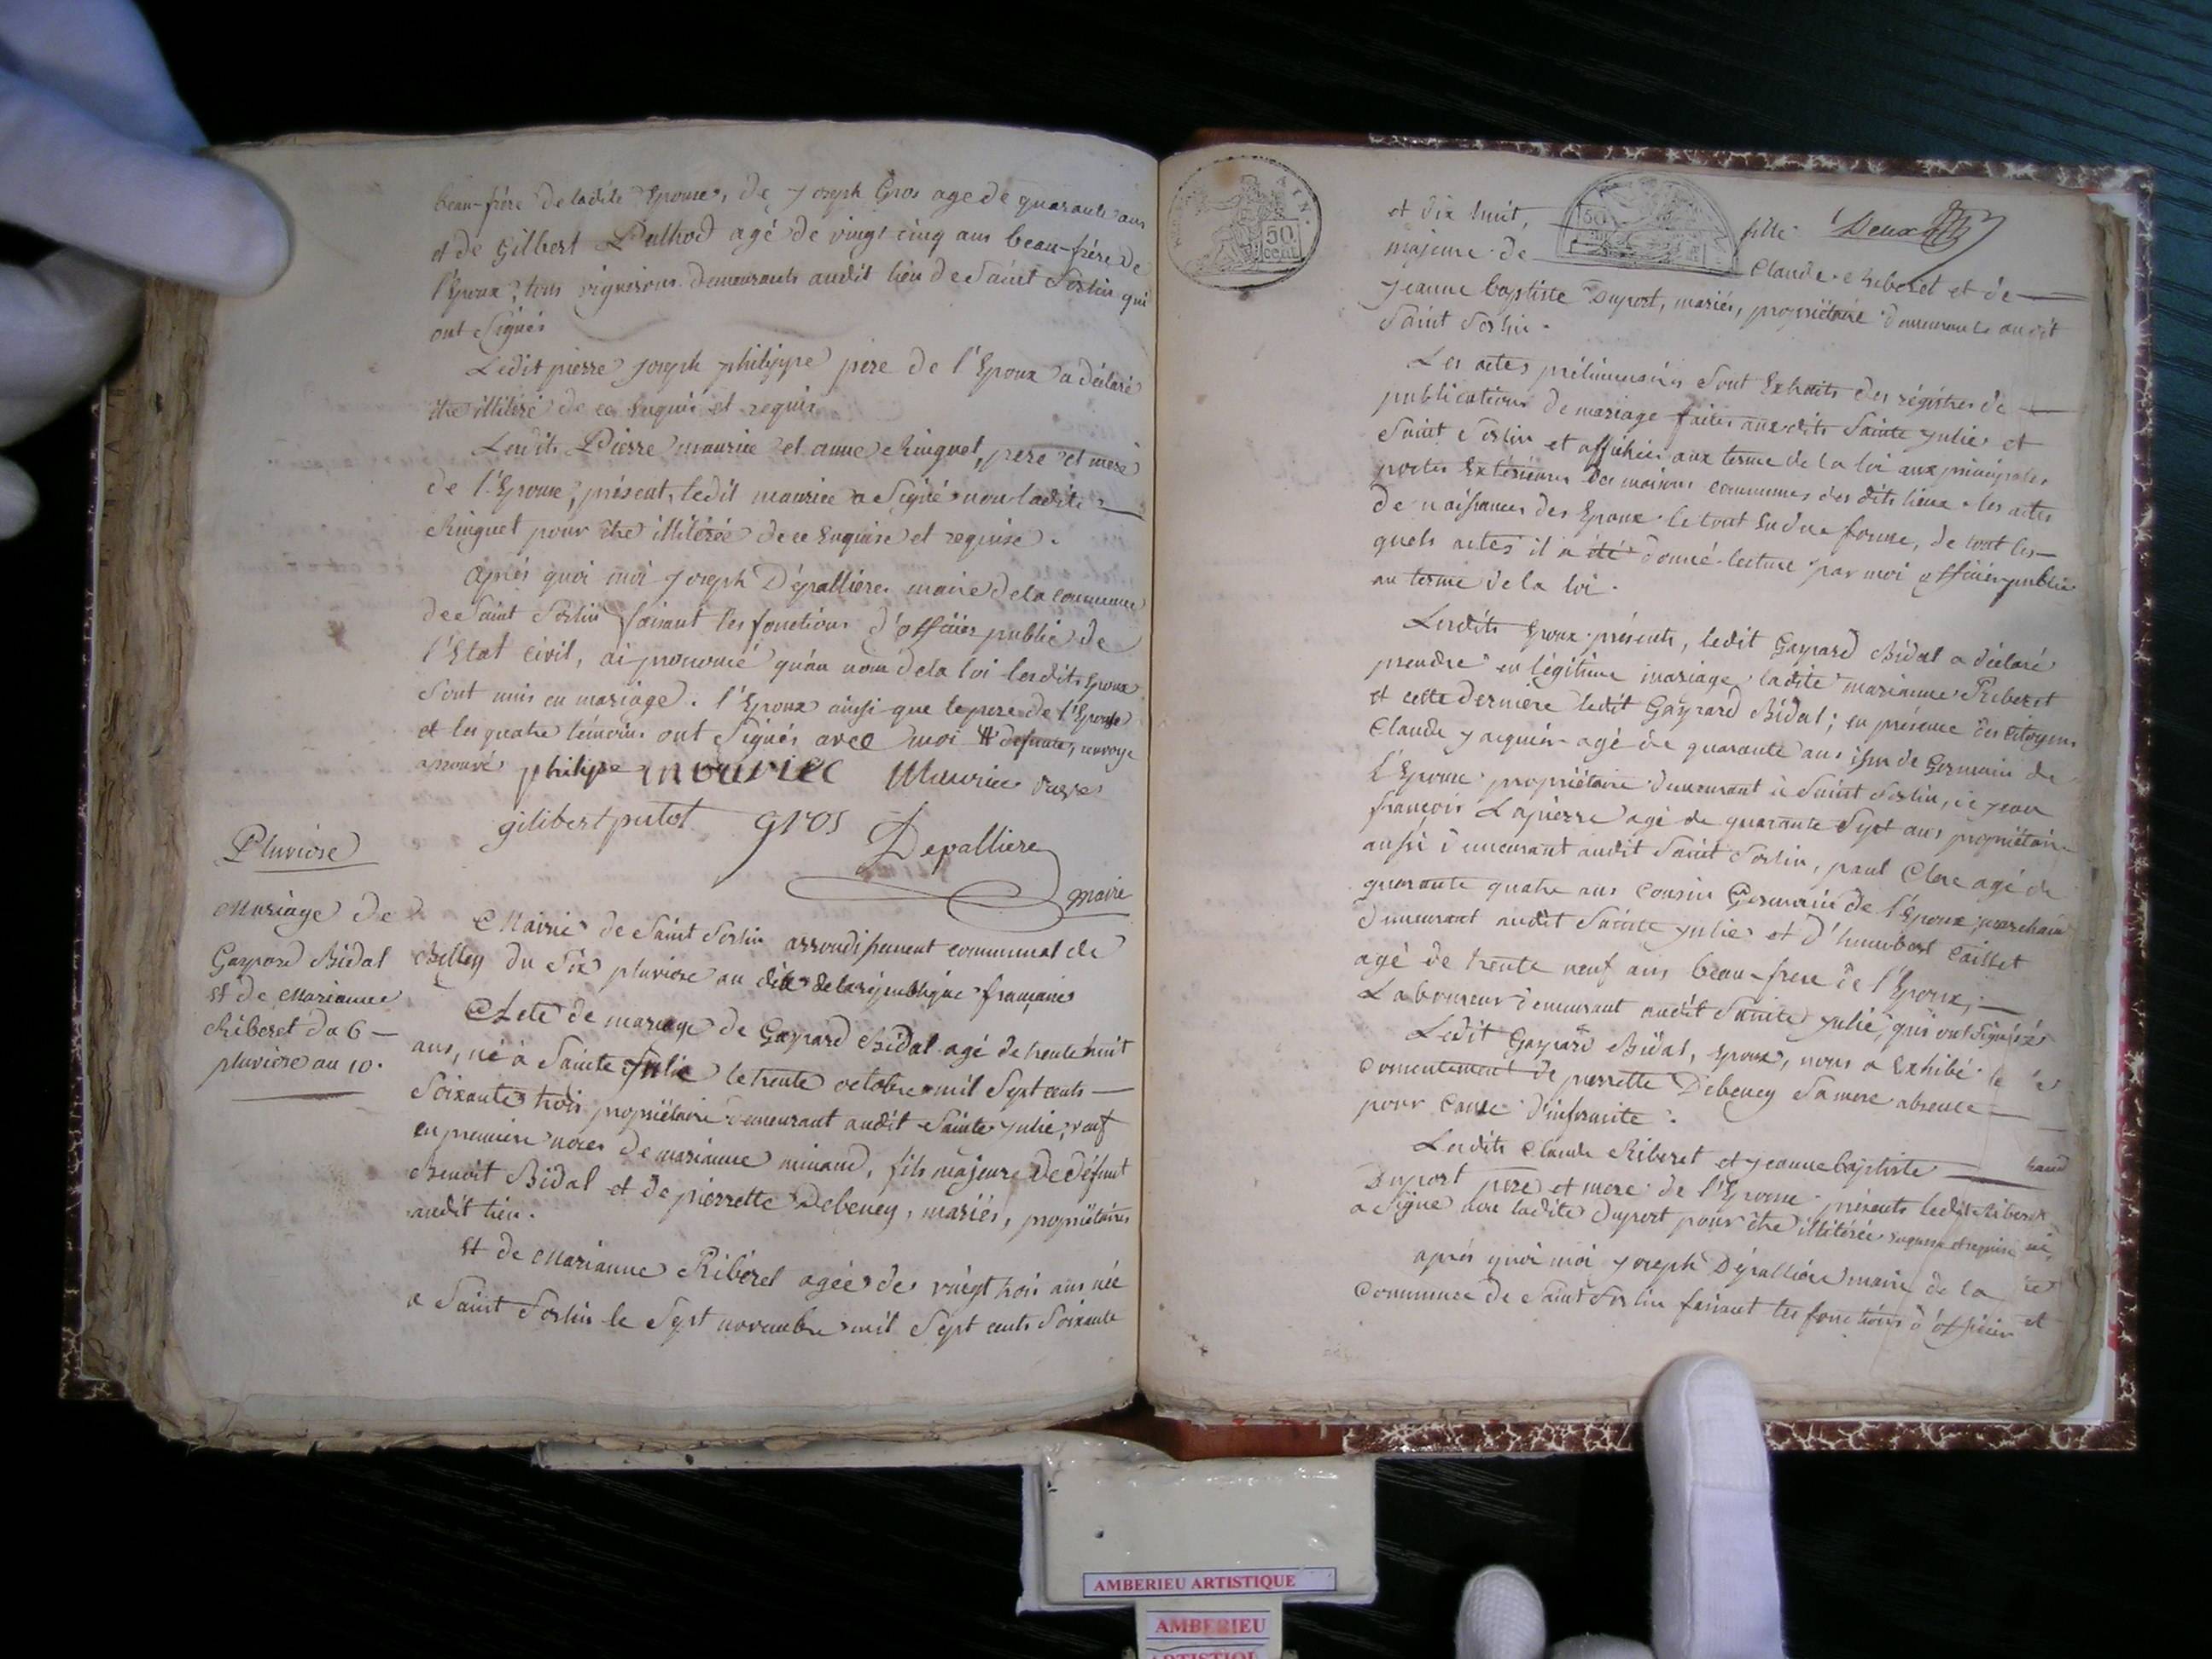 beau-frère de ladite Epouse, de Joseph Gros agé de quarante ans
et de Gilbert Puthod agé de vingt cinq ans beau-frère de
l'Epoux, tous vignerons demeurants audit lieu de Saint Sorlin qui
ont Signés
Ledit pierre joseph philippe père de l'Epoux a déclaré
être illitéré de ce Enquis et requis
Lesdits Pierre maurice et anne Ringuet, père et mere
de l'Epouse, présent, ledit maurice a Signé non ladite
Ringuet pour être illitérée de ce Enquise et requise.
Après quoi moi Joseph Dépallières maire de la commune
de Saint Sorlin faisant les fonctions d'officier public de
l'Etat civil, ai prononcé qu'au nom de la loi lesdits Epoux
Sont unis en mariage. l'Epoux ainsi que le pere de l'Epouse
et les quatre témoins ont Signés avec moi renvoye
aprouvé philipe mouriec Maurice
gilibert putot gros Depalliere
maire
Pluviose
Mariage de
Gaspard Bidal
et de Marianne
Riberet du 6
pluviose an 10.
Mairie de Saint Sorlin arrondissement communal de
Belley du Six pluviose an dix de la république française
Acte de mariage de Gaspard Bidal agé de trente huit
ans, né à Sainte Julie le trente octobre mil Sept cents
Soixante trois propriétaire demeurant audit Sainte Julie, veuf
en premiere noces de marianne minand, fils majeure de défunt
Benoit Bidal et de pierrette Debeney, mariés, propriétaires
audit lieu.
Et de Marianne Riberet agée de vingt trois ans née
a Saint Sorlin le Sept novembre mil Sept cents Soixante
50 cent
et dix huit, fille Deux
majeure de Claude Riberet et de
Jeanne baptiste Duport, mariés, propriétaire demeurants audit
Saint Sorlin.
Les actes préliminaires Sont Extraits des régistres de
publications de mariage faites auxdits Sainte Julie et
Saint Sorlin et affichés aux terme de la loi aux principales
portes Extérieures des maisons communes des dits lieux. les actes
de naissances des Epoux. le tout En due forme, de tout les-
quels actes il a été donné lecture par moi officier public
au terme de la loi.
Lesdits Epoux présents, ledit Gaspard Bidal a déclaré
prendre en légitime mariage ladite marianne Riberet
et cette derniere ledit Gaspard Bidal; en présence des citoyens
Claude Jacquier agé de quarante ans issu de Germain de
l'Epouse propriétaire demeurant à Saint Sorlin, de jean
françois Lapierre agé de quarante Sept ans propriétaire
aussi demeurant audit Saint Sorlin, paul Clerc agé de
quarante quatre ans Cousin Germain de l'Epoux, marchand
demeurant audit Sainte Julie et d'humbert Caillet
agé de trente neuf ans beau-frere de l'Epoux,
Laboureur demeurant audit Sainte Julie, qui ont Signés
Ledit Gaspard Bidal, Epoux, nous a Exhibé le
Consentement de pierrette Debeney Sa mere absente
pour cause d'infirmité.
Lesdits Claude Riberet et Jeanne baptiste
Duport pere et mere de l'Epouse présents ledit Riberet
a Signé non ladite Duport pour être illitérée enquise et requise
après quoi moi Joseph Dépallière maire de la
Commune de Saint Sorlin faisant les fonctions d'officier
AMBERIEU ARTISTIQUE
AMBERIEU
ARTISTIQUE